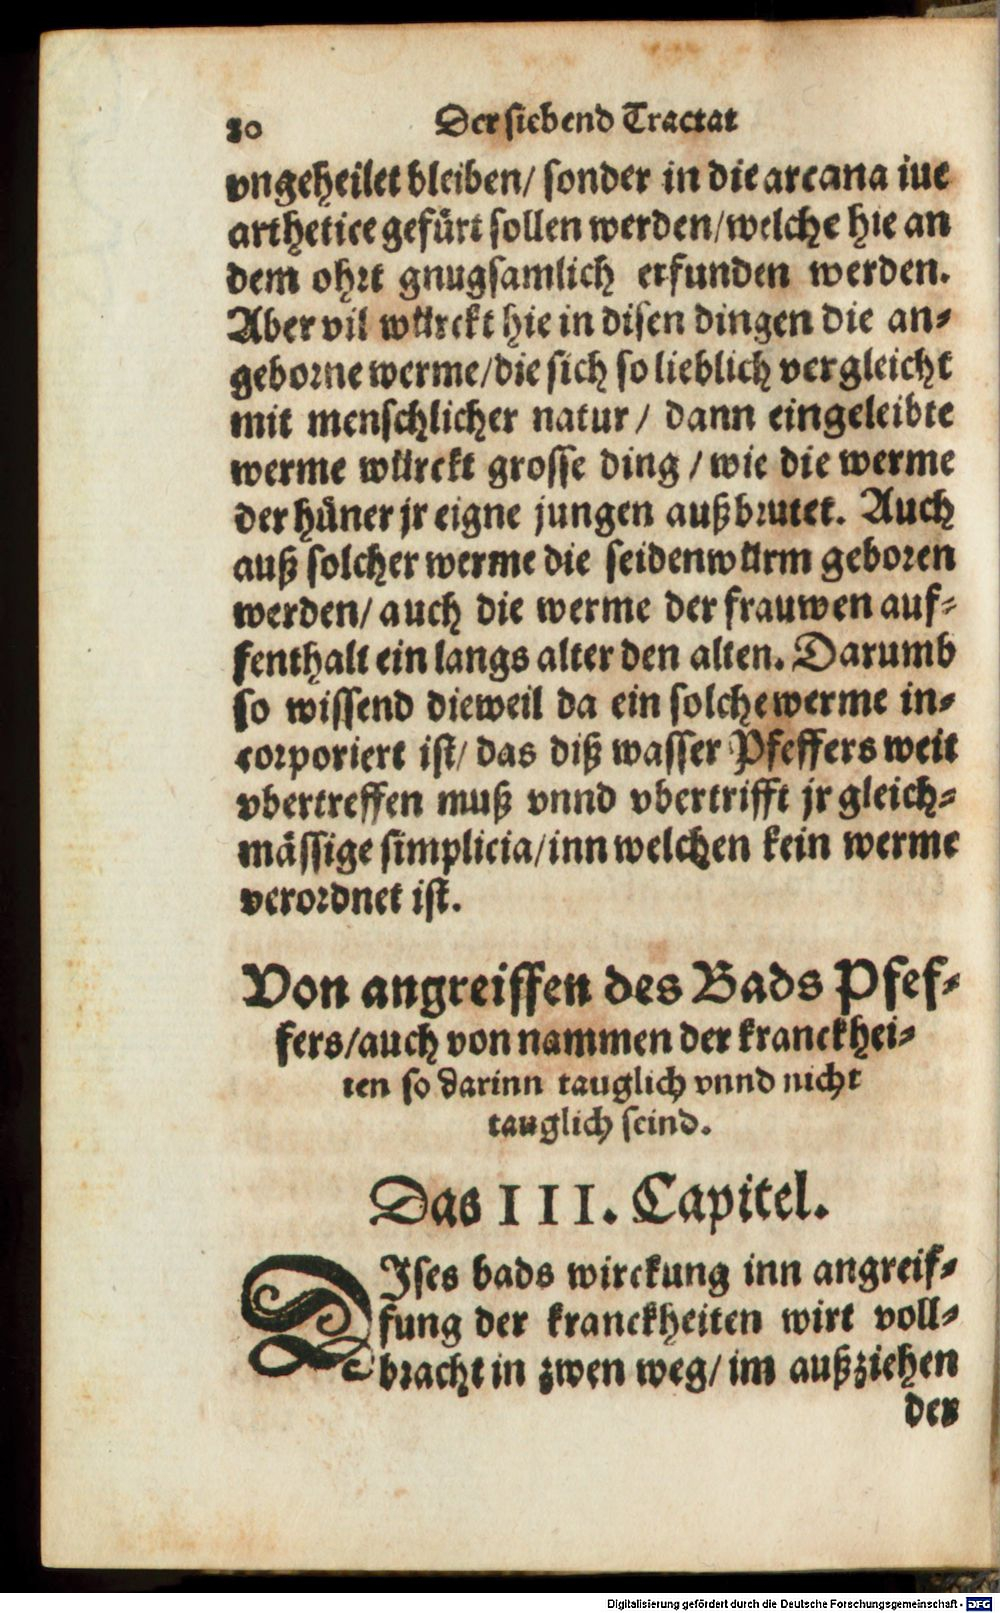 80 Der siebend Tractat
vngeheilet bleiben/ sonder in die arcana iue
arthetice gefürt sollen werden/welche hie an
dem ohrt gnugsamlich erfunden werden.
Aber vil würckt hie in disen dingen die an-
geborne werme/die sich so lieblich vergleicht
mit menschlicher natur / dann eingeleibte
werme würckt grosse ding / wie die werme
der hüner jr eigne jungen außbrutet. Auch
auß solcher werme die seidenwürm geboren
werden/ auch die werme der frauwen auf-
fenthalt ein langs alter den alten. Darumb
so wissend dieweil da ein solche werme in-
corporiert ist/ das diß wasser Pfeffers weit
vbertreffen muß vnnd vbertrifft jr gleich-
mässige simplicia/inn welchen kein werme
verordnet ist.
Von angreiffen des Bads Pfef-
fers/auch von nammen der kranckhei-
ten so darinn tauglich vnnd nicht
tauglich seind.
Das III. Capitel.
DIses bads wirckung inn angreif-
fung der kranckheiten wirt voll-
bracht in zwen weg/ im außziehen
der
Digitalisierung gefördert durch die Deutsche Forschungsgemeinschaft - DFG